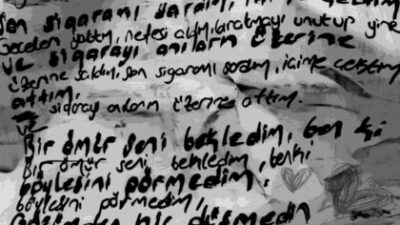 Sen sigaramı sardın,
nefesi aldım, bırakmayı unutup yine
ve sigarayı anıların üzerine
üzerine saldım, sen sigaramı sardın, içime çektim
attım.
ve sigarayı anıların üzerine attım.
Bir ömür seni bekledim, ben ki
Bir ömür seni bekledim, belki
böylesini görmedim,
böylesini görmedim,
hiç düşmedin